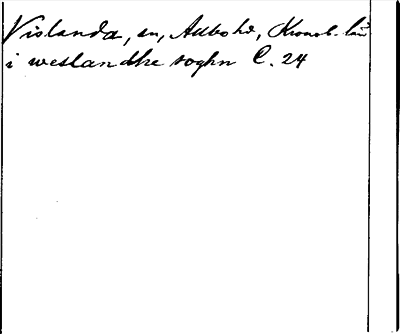 Vislanda, sn, Allbo hd, Kronob. län
i weslandhe soghn C. 24